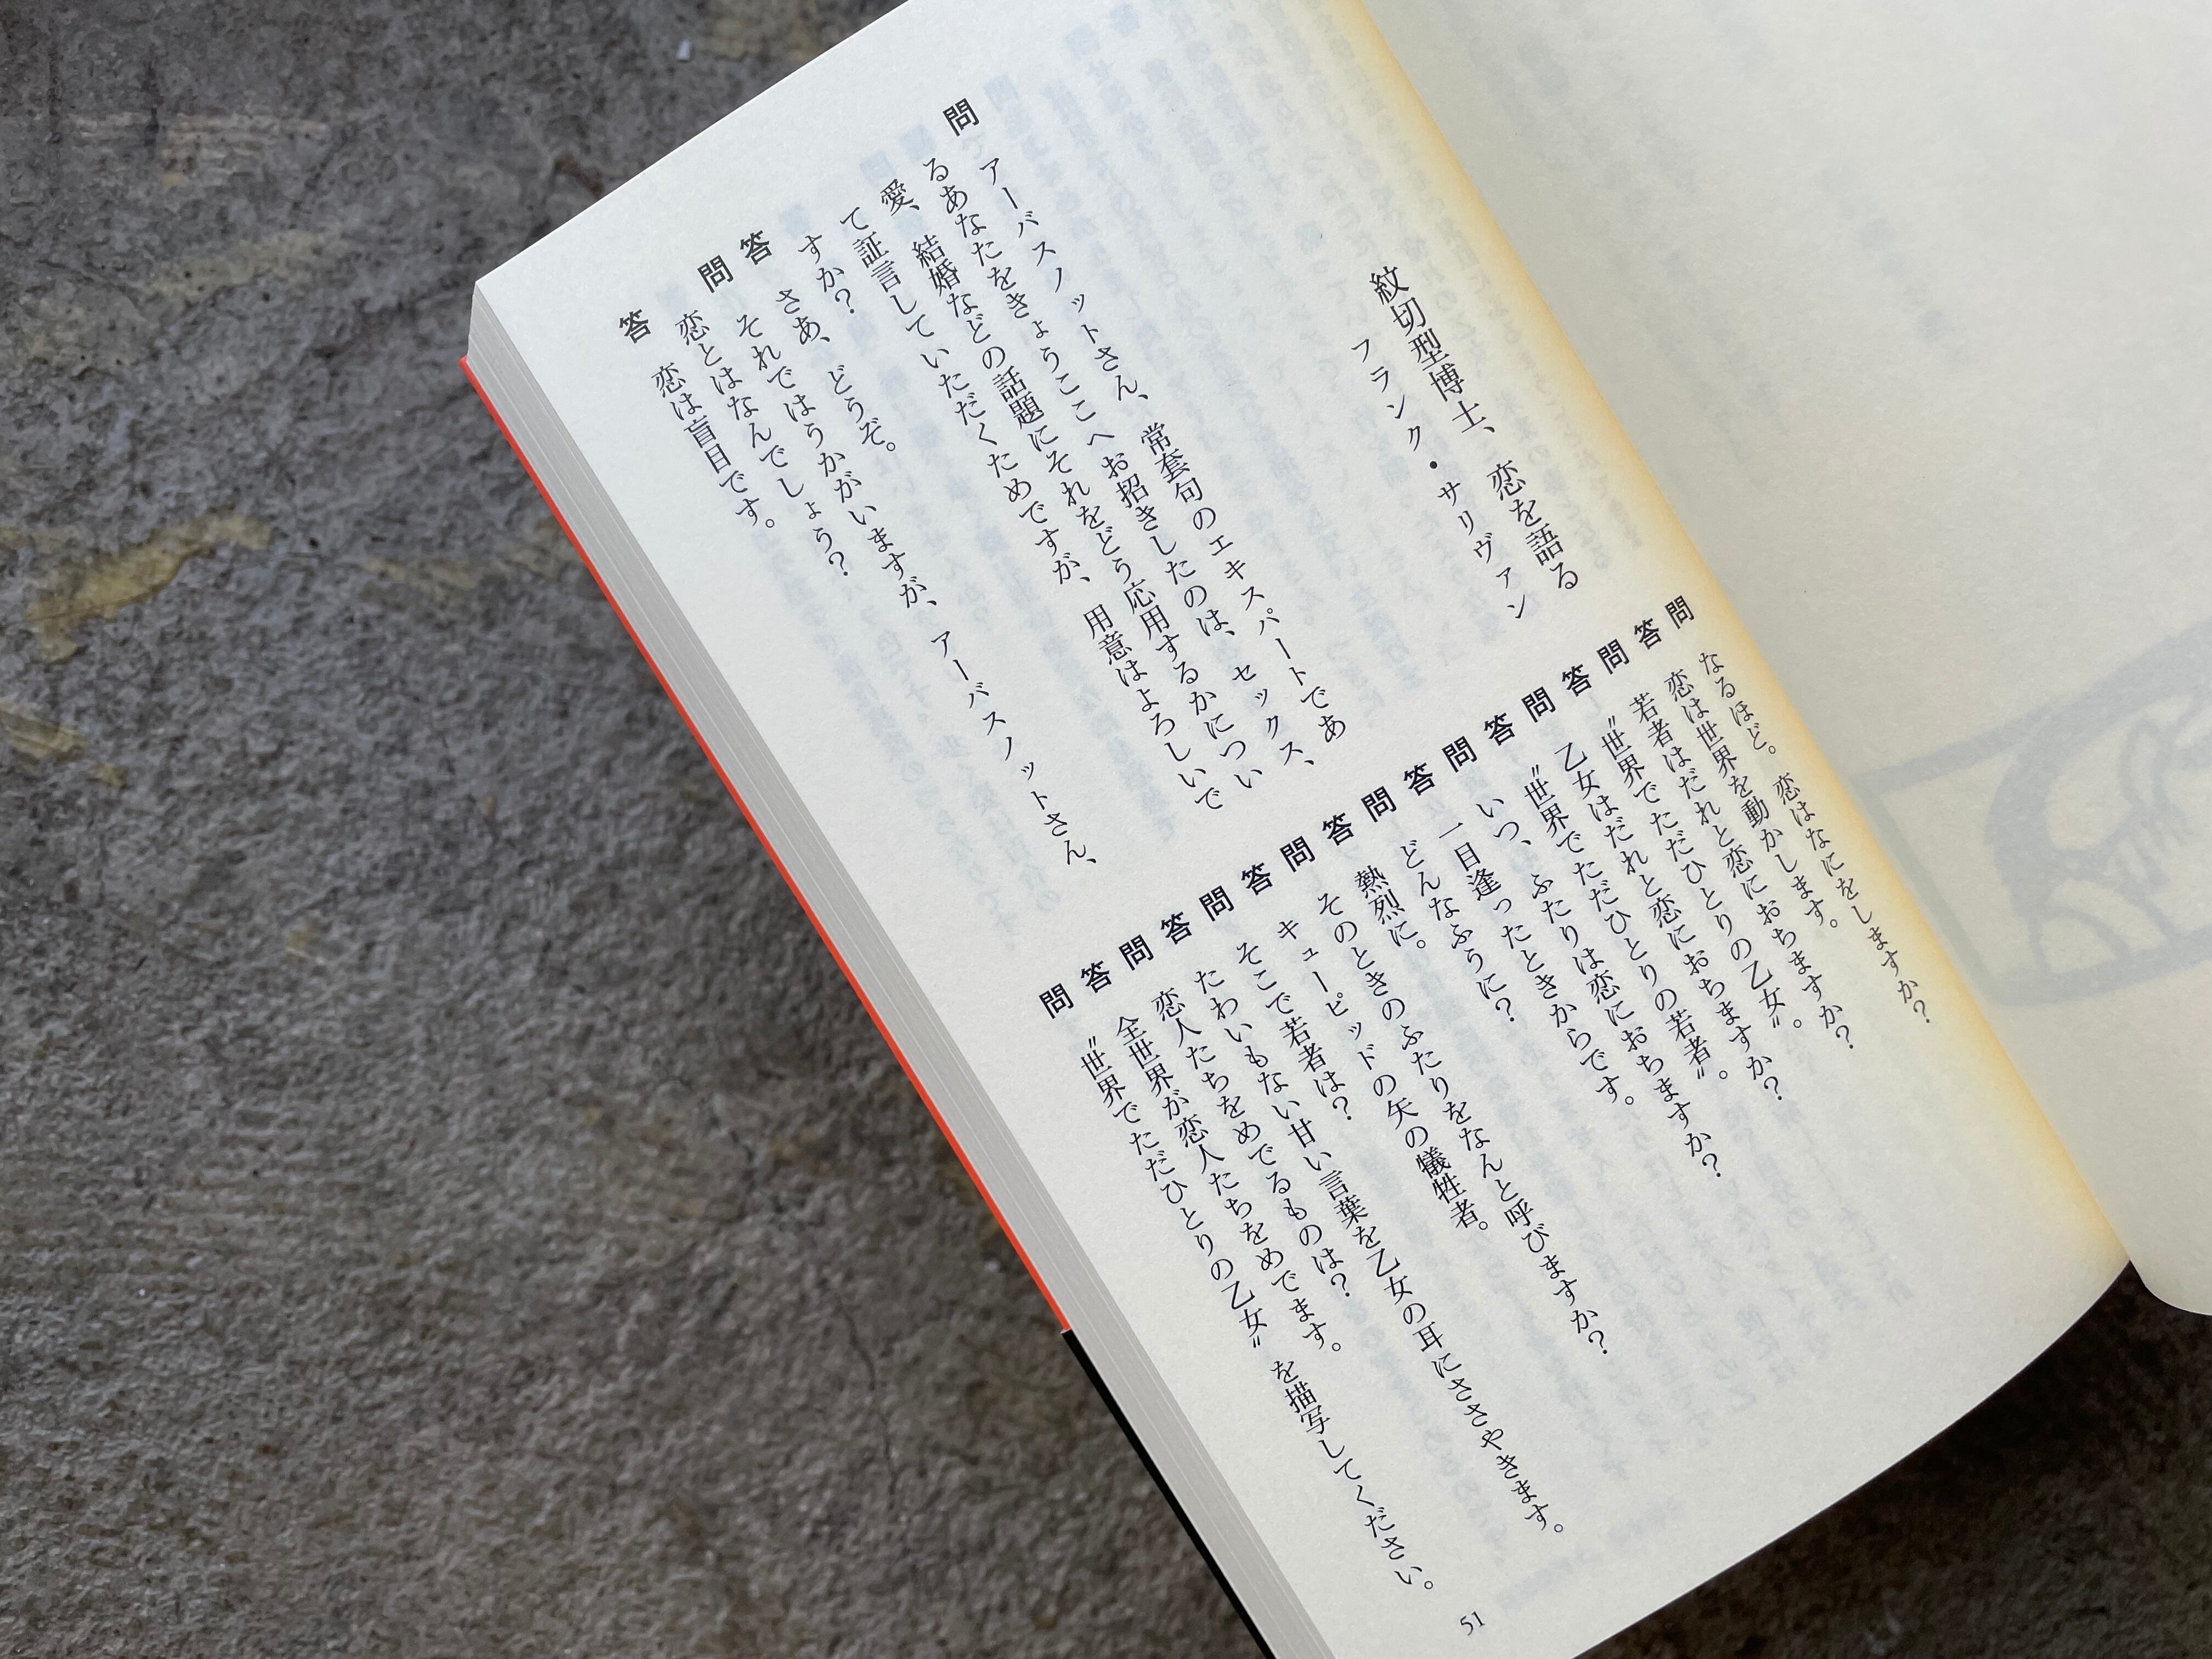 紋切型博士、恋を語る
フランク・サリヴァン
問　アーバスノットさん、常套句のエキスパートであ
るあなたをきょうここへお招きしたのは、セックス、
愛、結婚などの話題にそれをどう応用するかについ
て証言していただくためですが、用意はよろしいで
すか？
答　さあ、どうぞ。
問　それではうかがいますが、アーバスノットさん、
恋とはなんでしょう？
答　恋は盲目です。
問　なるほど。恋はなにをしますか？
答　恋は世界を動かします。
問　若者はだれと恋におちますか？
答　〝世界でただひとりの乙女〟。
問　乙女はだれと恋におちますか？
答　〝世界でただひとりの若者〟。
問　いつ、ふたりは恋におちますか？
答　一目逢ったときからです。
問　どんなふうに？
答　熱烈に。
問　そのときのふたりをなんと呼びますか？
答　キューピッドの矢の犠牲者。
問　そこで若者は？
答　たわいもない甘い言葉を乙女の耳にささやきます。
問　恋人たちをめでるものは？
答　全世界が恋人たちをめでます。
問　〝世界でただひとりの乙女〟を描写してください。
51